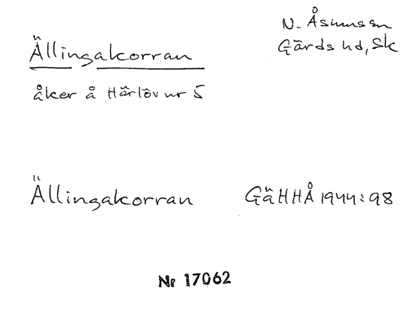 Ällingakorran
N. Åsumssn
Gärds hd, Sk
åker å Härlöv nr 5
Ällingakorran GäHHÅ 1944:98
Nr 17062